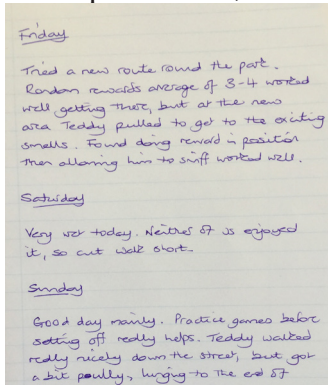 Friday
Tried a new route round the park.
Random rewards average of 3-4 worked
well getting there, but at the new
area Teddy pulled to get to the exciting
smells. Found doing reward in position
then allowing him to sniff worked well.
Saturday
Very wet today. Neither of us enjoyed
it, so cut walk short.
Sunday
Good day mainly. Practice games before
setting off really helps. Teddy walked
really nicely down the street, but got
a bit pully, lunging to the end of